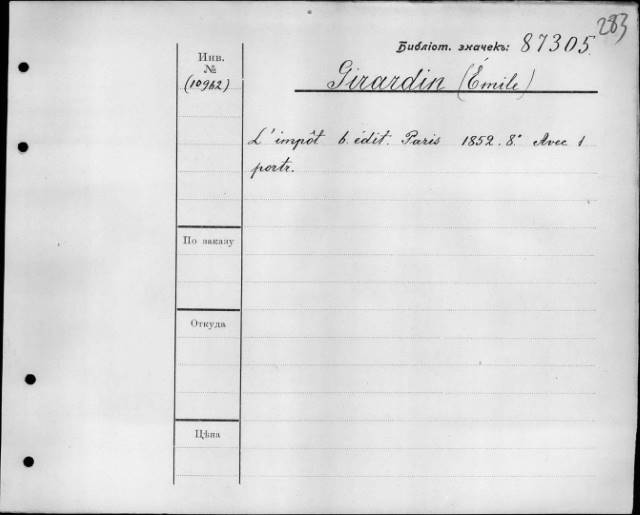 283
Библіот. значекъ: 87305.
Инв.
№
(10962)
Girardin (Émile)
L'impôt 6. édit. Paris 1852. 8° Avec 1
portr.
По заказу
Откуда
Цѣна